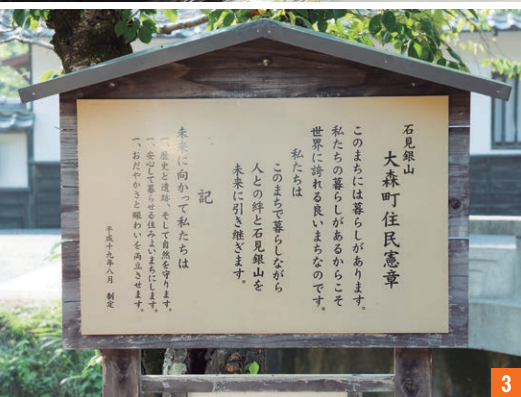 石見銀山
大森町住民憲章
このまちには暮らしがあります。
私たちの暮らしがあるからこそ
世界に誇れる良いまちなのです。
私たちは
このまちで暮らしながら
人との絆と石見銀山を
未来に引き継ぎます。
記
未来に向かって私たちは
一、歴史と遺跡、そして自然を守ります。
一、安心して暮らせる住みよいまちにします。
一、おだやかさと賑わいを両立させます。
平成十九年八月 制定
3